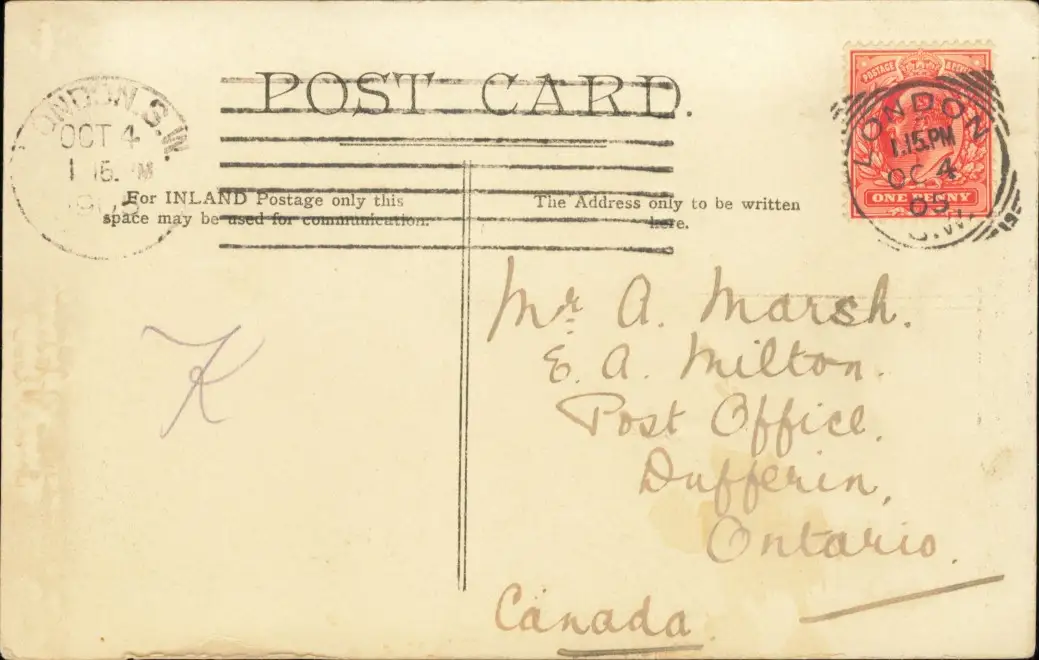 POST CARD.
LONDON.S.W.
OCT 4
1 15. PM
190
POSTAGE
LONDON
1.15.PM
OC 4
05
S.W.
ONE PENNY
For INLAND Postage only this
space may be used for communication.
The Address only to be written
here.
K
Mr. A. Marsh.
E. A. Milton.
Post Office.
Dufferin,
Ontario.
Canada.